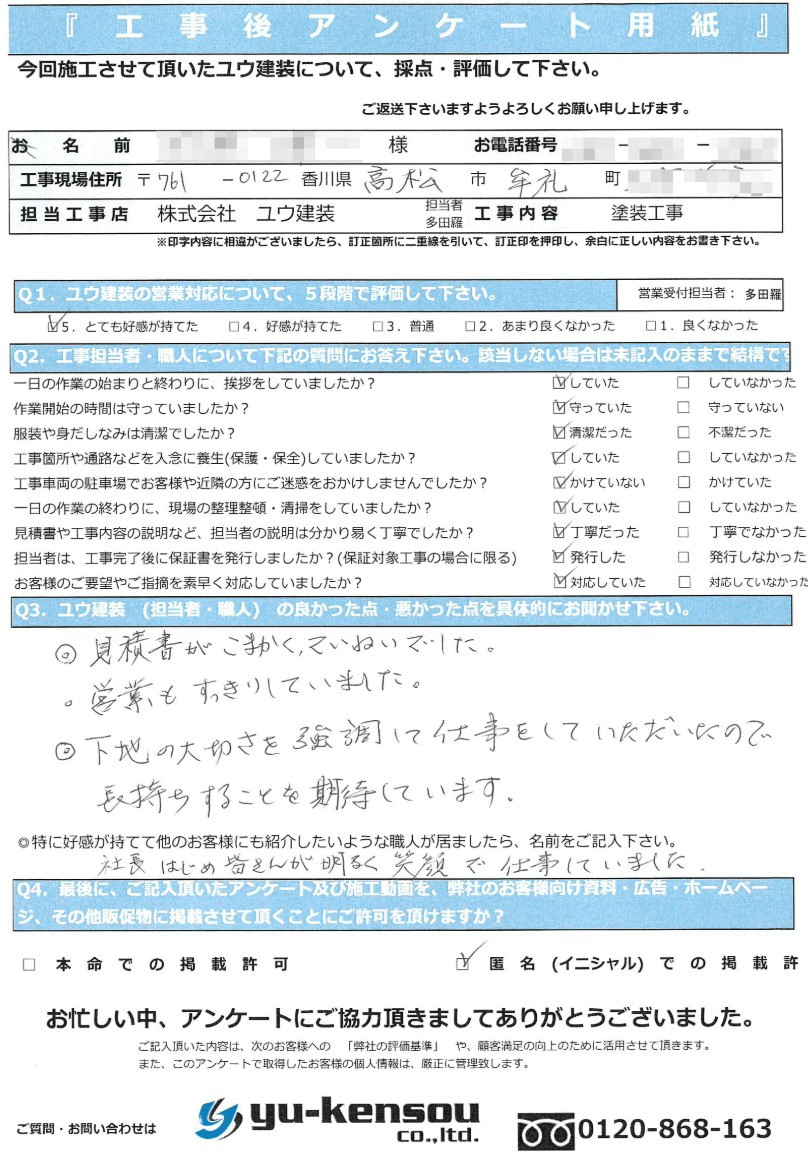 『工事後アンケート用紙』
今回施工させて頂いたユウ建装について、採点・評価して下さい。
ご返送下さいますようよろしくお願い申し上げます。
お名前 様 お電話番号 － －
工事現場住所 〒761-0122 香川県 高松 市 牟礼 町
担当工事店 株式会社 ユウ建装 担当者 多田羅 工事内容 塗装工事
※印字内容に相違がございましたら、訂正箇所に二重線を引いて、訂正印を押印し、余白に正しい内容をお書き下さい。
Q1．ユウ建装の営業対応について、5段階で評価して下さい。 営業受付担当者：多田羅
☑5．とても好感が持てた □4．好感が持てた □3．普通 □2．あまり良くなかった □1．良くなかった
Q2．工事担当者・職人について下記の質問にお答え下さい。該当しない場合は未記入のままで結構です
一日の作業の始まりと終わりに、挨拶をしていましたか？ ☑していた □ していなかった
作業開始の時間は守っていましたか？ ☑守っていた □ 守っていない
服装や身だしなみは清潔でしたか？ ☑清潔だった □ 不潔だった
工事箇所や通路などを入念に養生(保護・保全)していましたか？ ☑していた □ していなかった
工事車両の駐車場でお客様や近隣の方にご迷惑をおかけしませんでしたか？ ☑かけていない □ かけていた
一日の作業の終わりに、現場の整理整頓・清掃をしていましたか？ ☑していた □ していなかった
見積書や工事内容の説明など、担当者の説明は分かり易く丁寧でしたか？ ☑丁寧だった □ 丁寧でなかった
担当者は、工事完了後に保証書を発行しましたか？(保証対象工事の場合に限る) ☑発行した □ 発行しなかった
お客様のご要望やご指摘を素早く対応していましたか？ ☑対応していた □ 対応していなかった
Q3．ユウ建装 (担当者・職人) の良かった点・悪かった点を具体的にお聞かせ下さい。
◎見積書がこまかく、ていねいでした。
。営業もすっきりしていました。
◎下地の大切さを強調して仕事をしていただいたので
長持ちすることを期待しています。
◎特に好感が持てて他のお客様にも紹介したいような職人が居ましたら、名前をご記入下さい。
社長はじめ皆さんが明るく笑顔で仕事していました.
Q4．最後に、ご記入頂いたアンケート及び施工動画を、弊社のお客様向け資料・広告・ホームペー
ジ、その他販促物に掲載させて頂くことにご許可を頂けますか？
□ 本命での掲載許可 ☑ 匿名(イニシャル)での掲載許
お忙しい中、アンケートにご協力頂きましてありがとうございました。
ご記入頂いた内容は、次のお客様への 「弊社の評価基準」 や、顧客満足の向上のために活用させて頂きます。
また、このアンケートで取得したお客様の個人情報は、厳正に管理致します。
ご質問・お問い合わせは yu-kensou co.,ltd. 0120-868-163